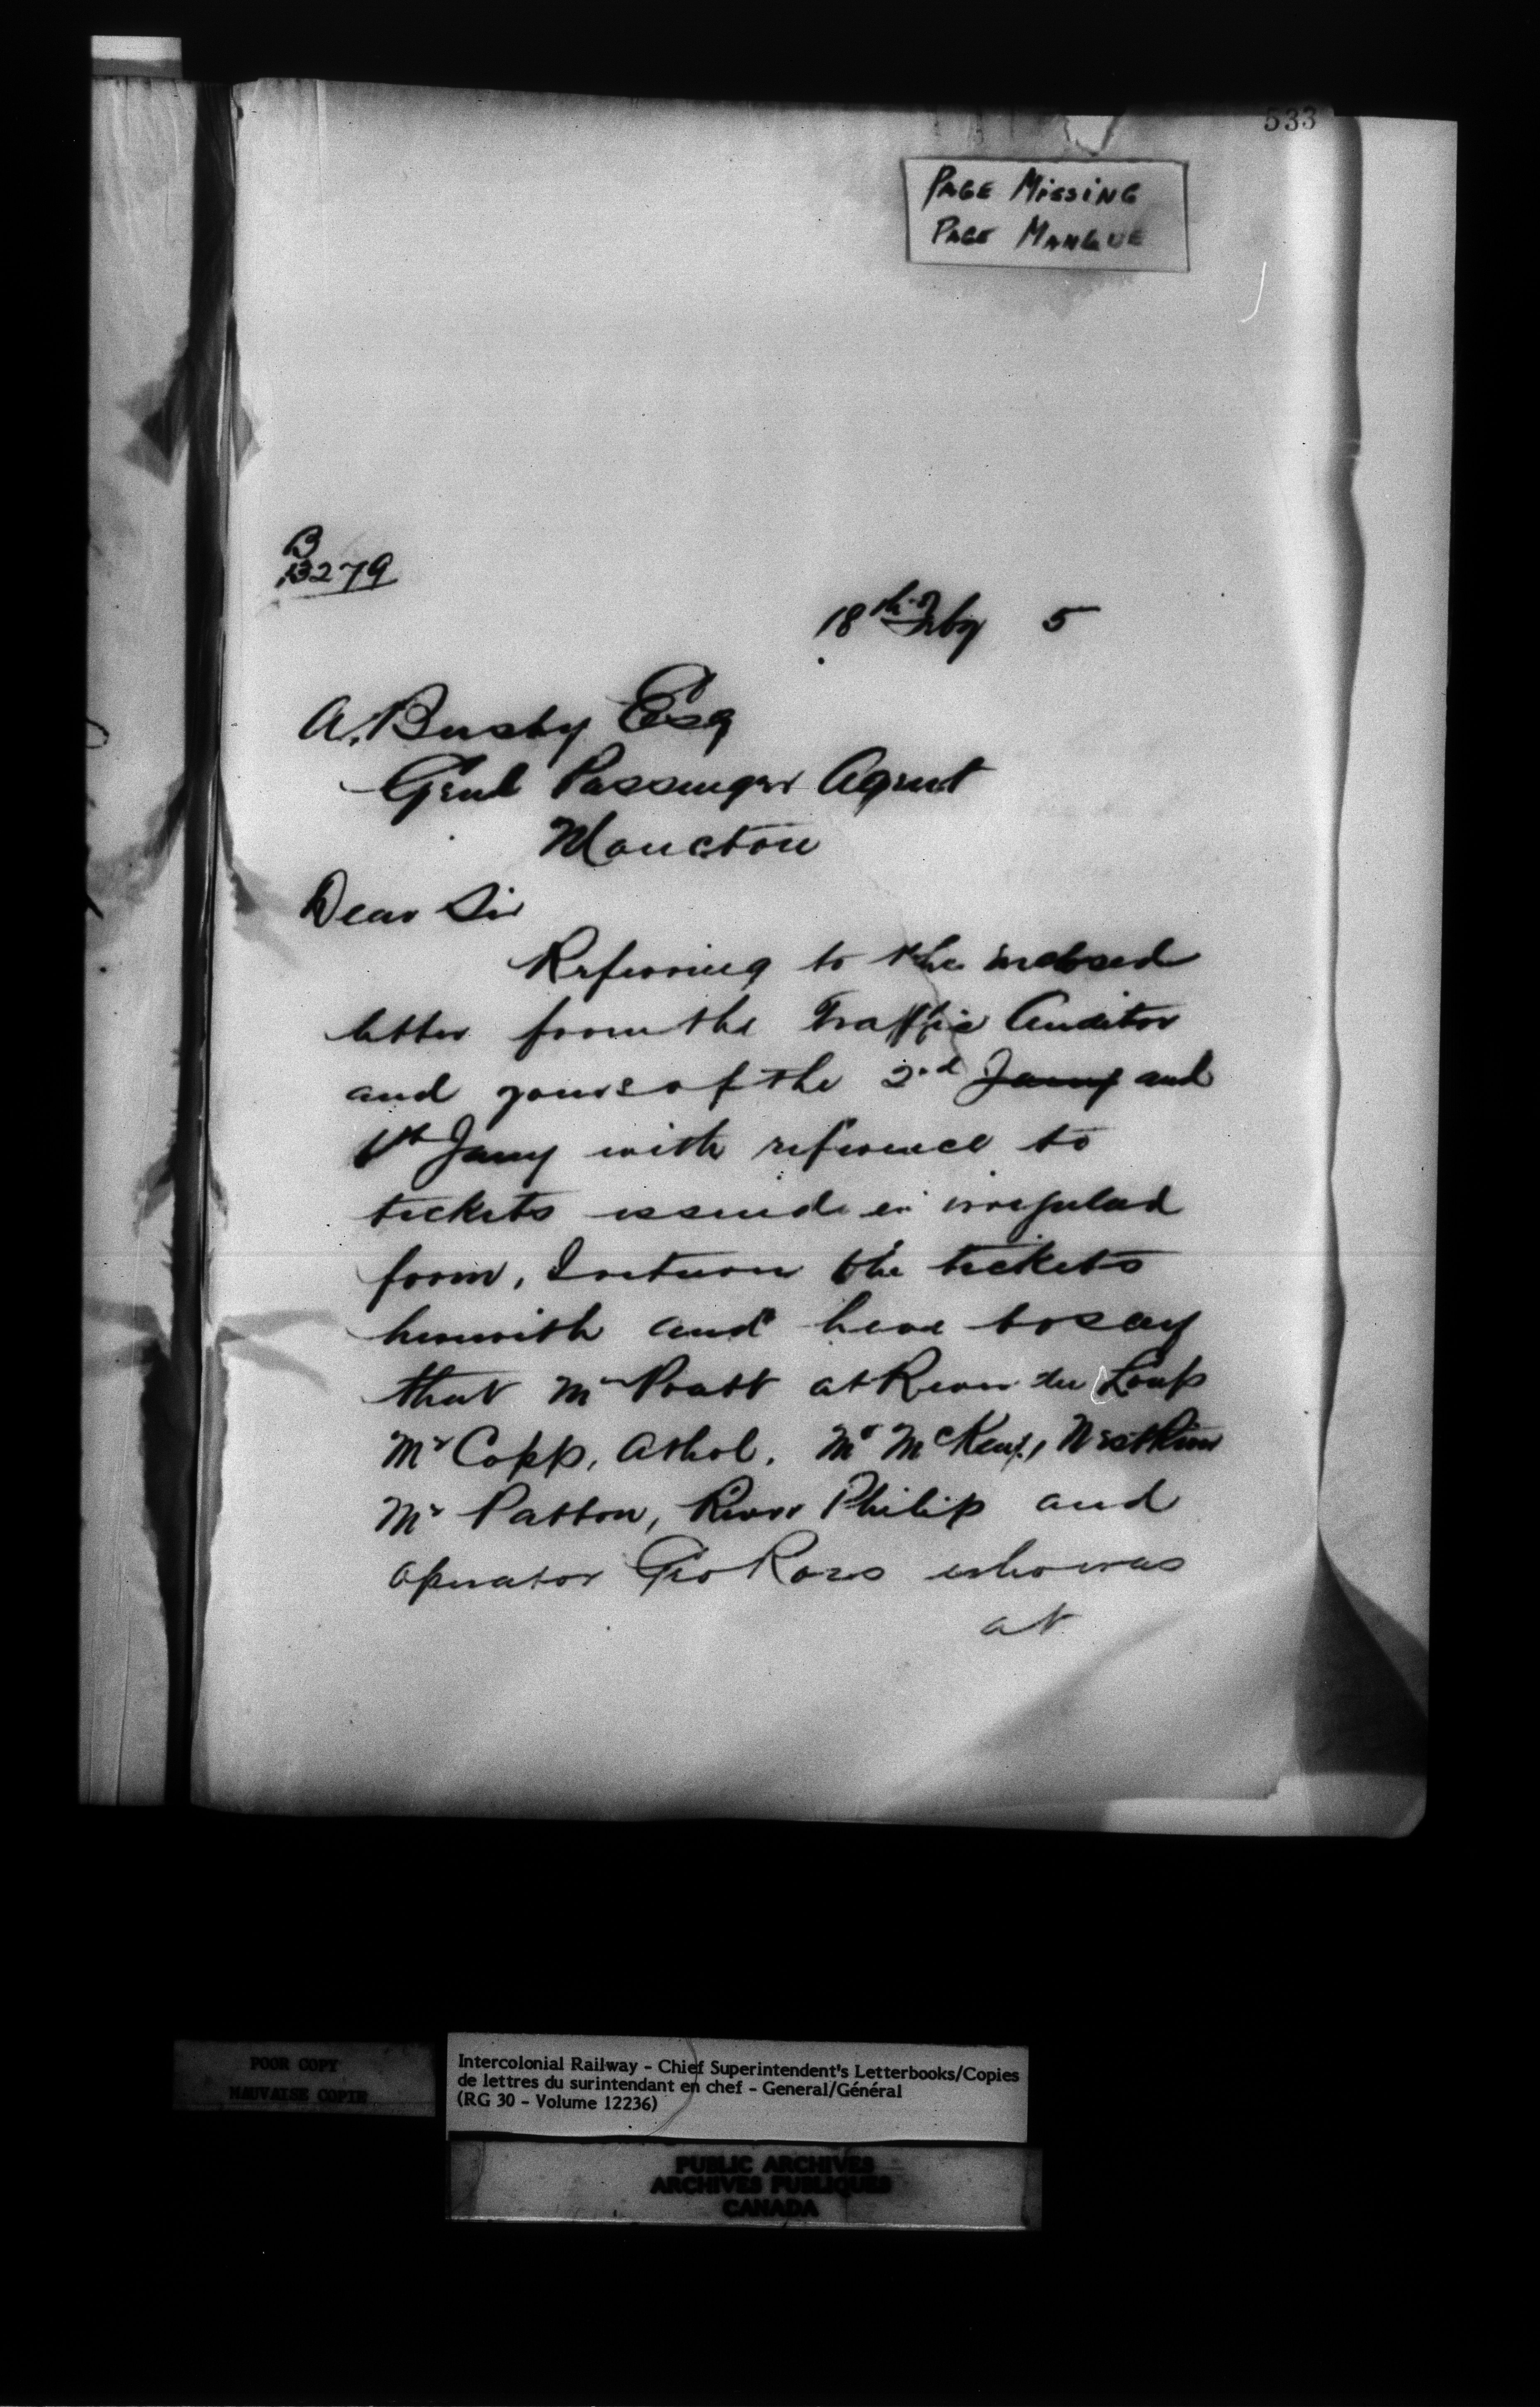 533
PAGE MISSING
PAGE MANQUE
B
13279
18th Feby 5
A. Busby Esq
Genl Passenger Agent
Moncton
Dear Sir
Referring to the inclosed
letter from the Traffic Auditor
and yours of the 2nd Jany and
Jany with reference to
tickets issued in irregular
form, I return the tickets
herewith and have to say
that Mr Pratt at River du Loup
Mr Copp, Athol. Mr McKay, West River
Mr Patton, River Philip and
operator Geo Ross who was
at
POOR COPY
MAUVAISE COPIE
Intercolonial Railway - Chief Superintendent's Letterbooks/Copies
de lettres du surintendant en chef - General/Général
(RG 30 - Volume 12236)
PUBLIC ARCHIVES
ARCHIVES PUBLIQUES
CANADA